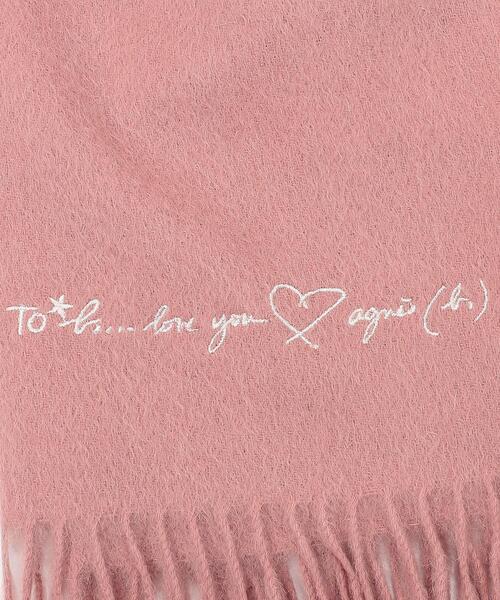 To*b.... love you ♡ agnès (b.)